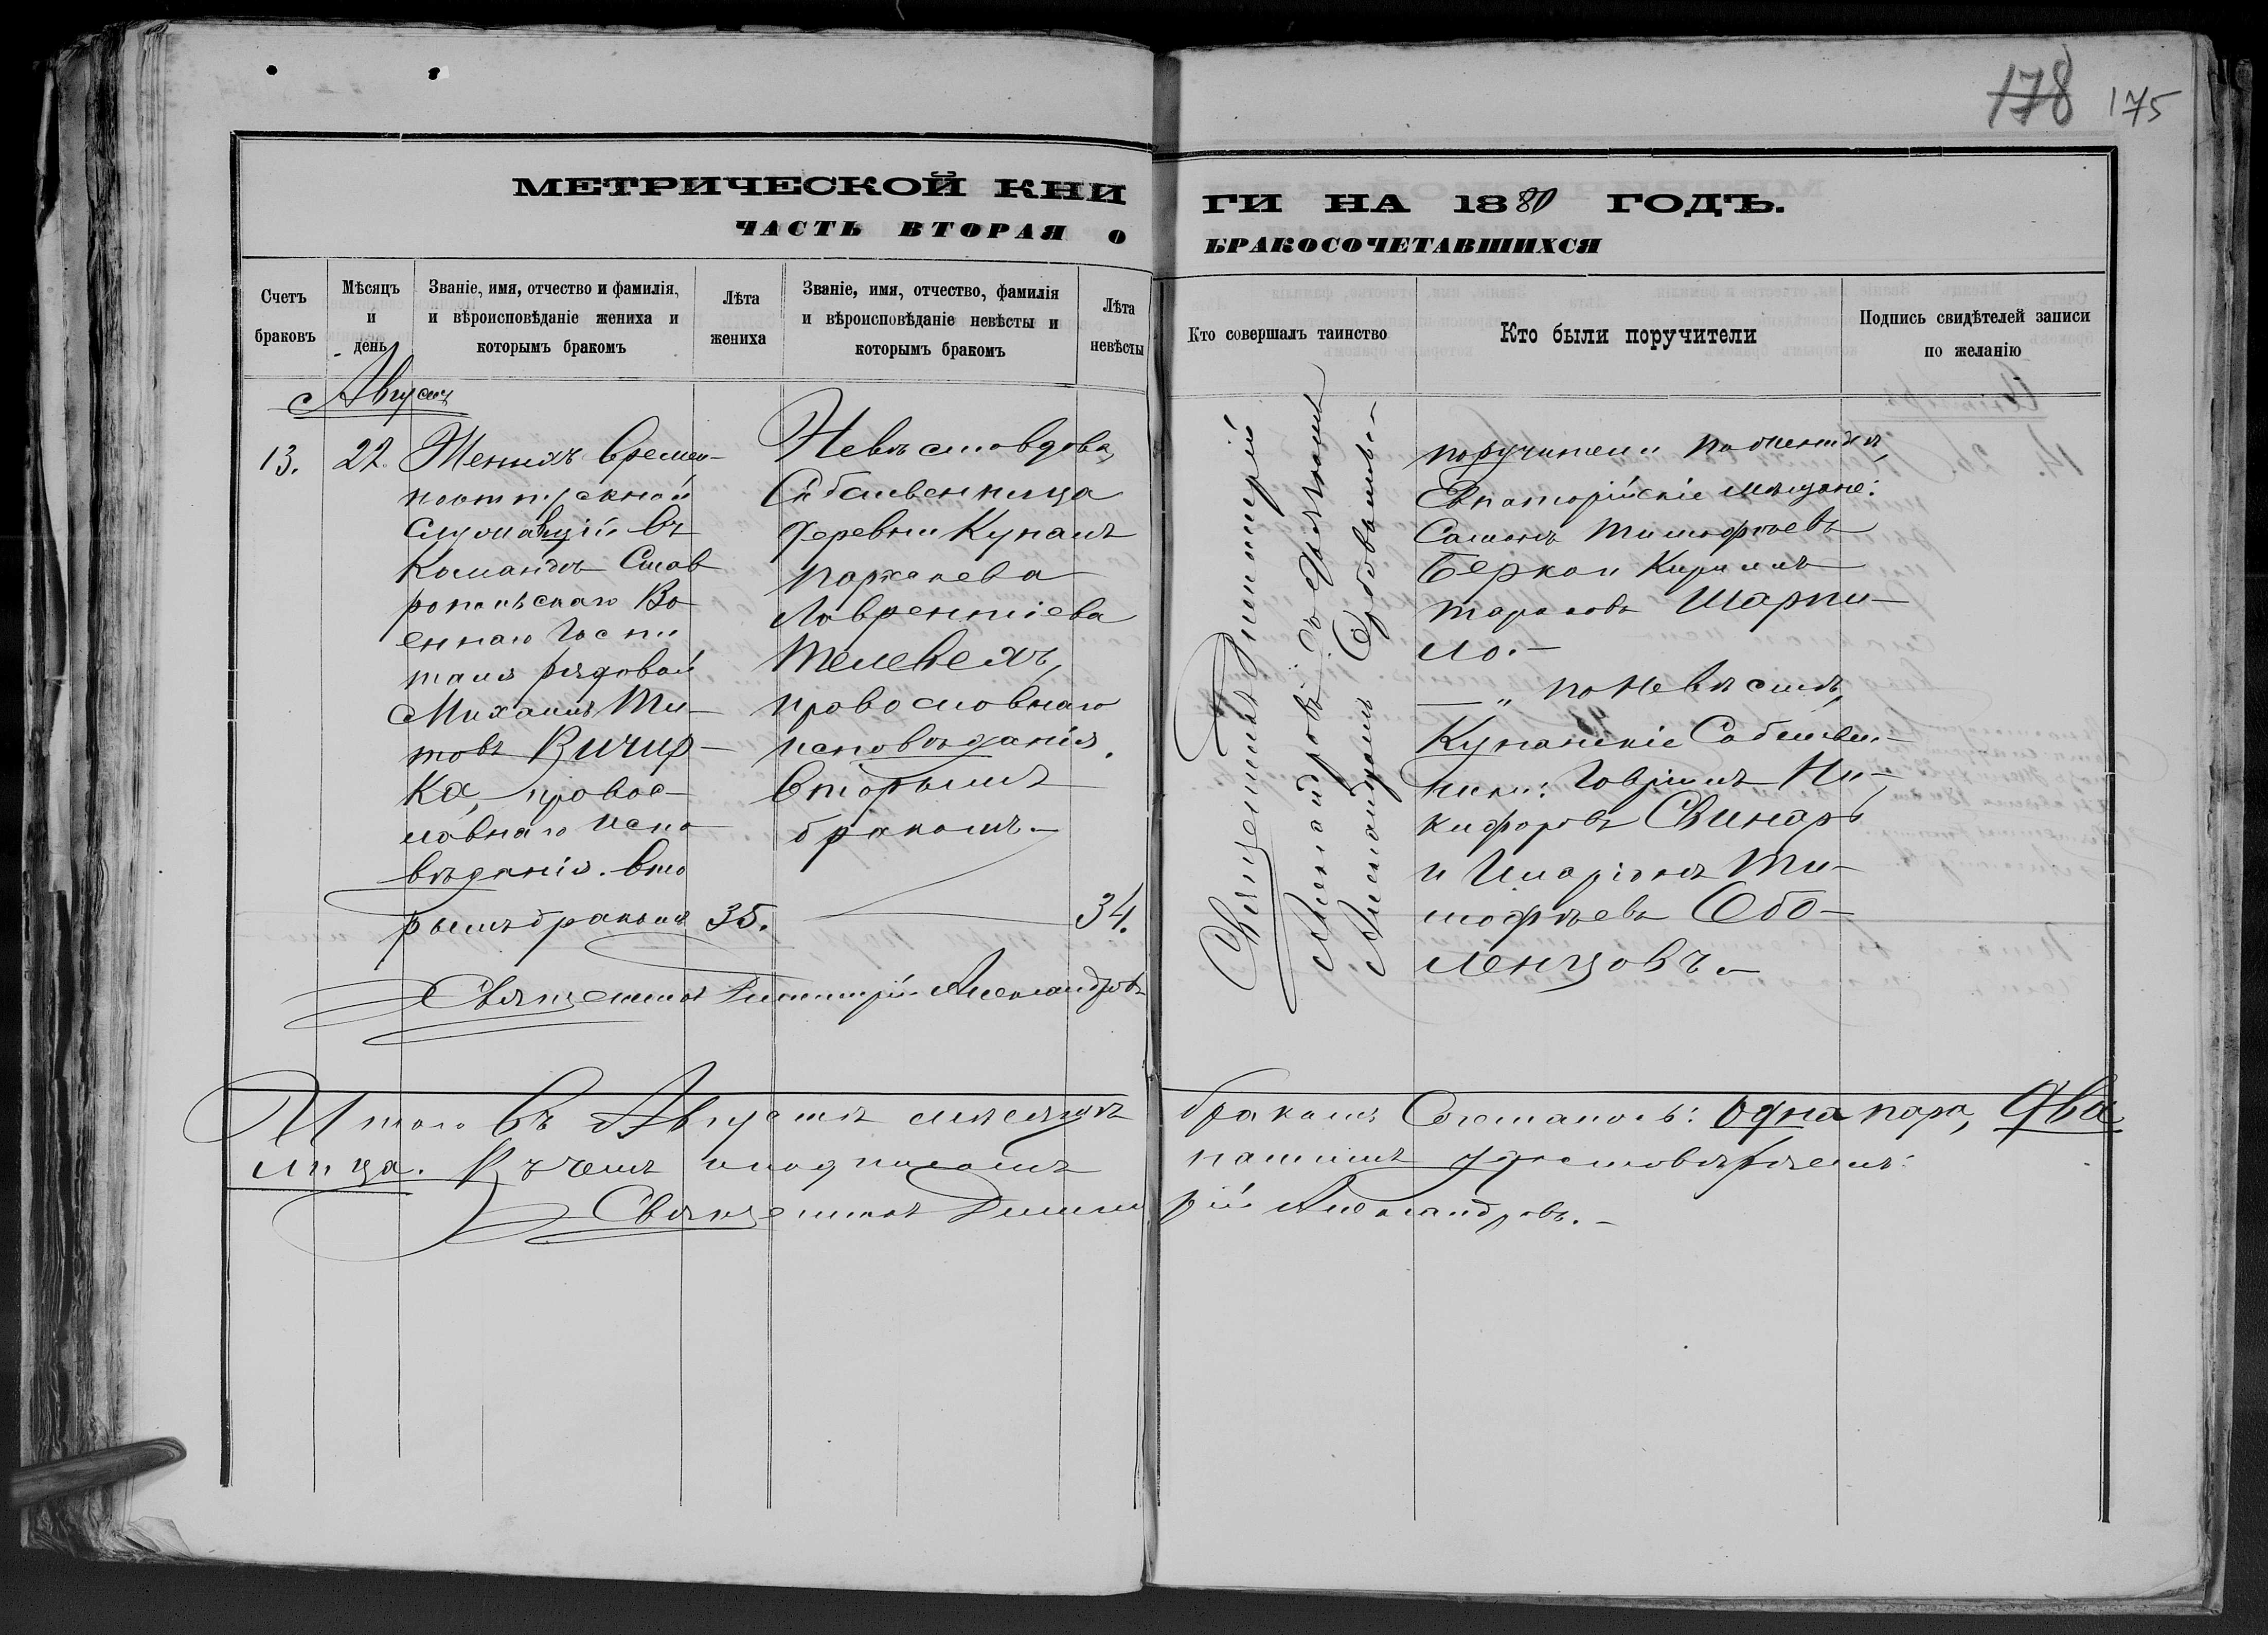 178 175
МЕТРИЧЕСКОЙ КНИ
ГИ НА 1880 ГОДЪ.
ЧАСТЬ ВТОРАЯ О
БРАКОСОЧЕТАВШИХСЯ
Счетъ браковъ
Мѣсяцъ и день
Званіе, имя, отчество и фамилія,
и вѣроисповѣданіе жениха и
которымъ бракомъ
Лѣта жениха
Званіе, имя, отчество, фамилія
и вѣроисповѣданіе невѣсты и
которымъ бракомъ
Лѣта невѣсты
Кто совершалъ таинство
Кто были поручители
Подпись свидѣтелей записи
по желанію
Августъ
13.
22.
Женихъ Времен-
ноотпускной
служащій въ
Командѣ Став
ропольскаго Во
еннаго Госпи
таля рядовой
Михаилъ Ти-
товъ Кичир-
ка, правос-
лавнаго испо
вѣданія. Вто
рымъ бракомъ
35.
Невѣста вдова,
Собственница
деревни Купань
Лаврентіева
Телевехъ,
православнаго
исповѣданія.
Вторымъ
бракомъ.-
34.
Священникъ Димитрій Александровъ
Священникъ Димитрій
Александровъ съ
Александромъ
поручители по женихѣ,
Евпаторійскіе мѣщане:
Тимофѣевъ
Кириллъ
Тарасовъ Шарпи-
ло.-
— „ по Невѣстѣ,
Купанскіе Собствен-
ники: Гавріилъ Ни-
кифоровъ Свинарь
и Иларіонъ Ти-
мофѣевъ Обо-
ленцовъ.-
Итого въ Августѣ мѣсяцѣ
бракомъ Сочеталось: одна пара, два
лица. Въ чемъ и подписомъ
нашимъ удостовѣряемъ:
Священникъ Димит
рій Александровъ.-